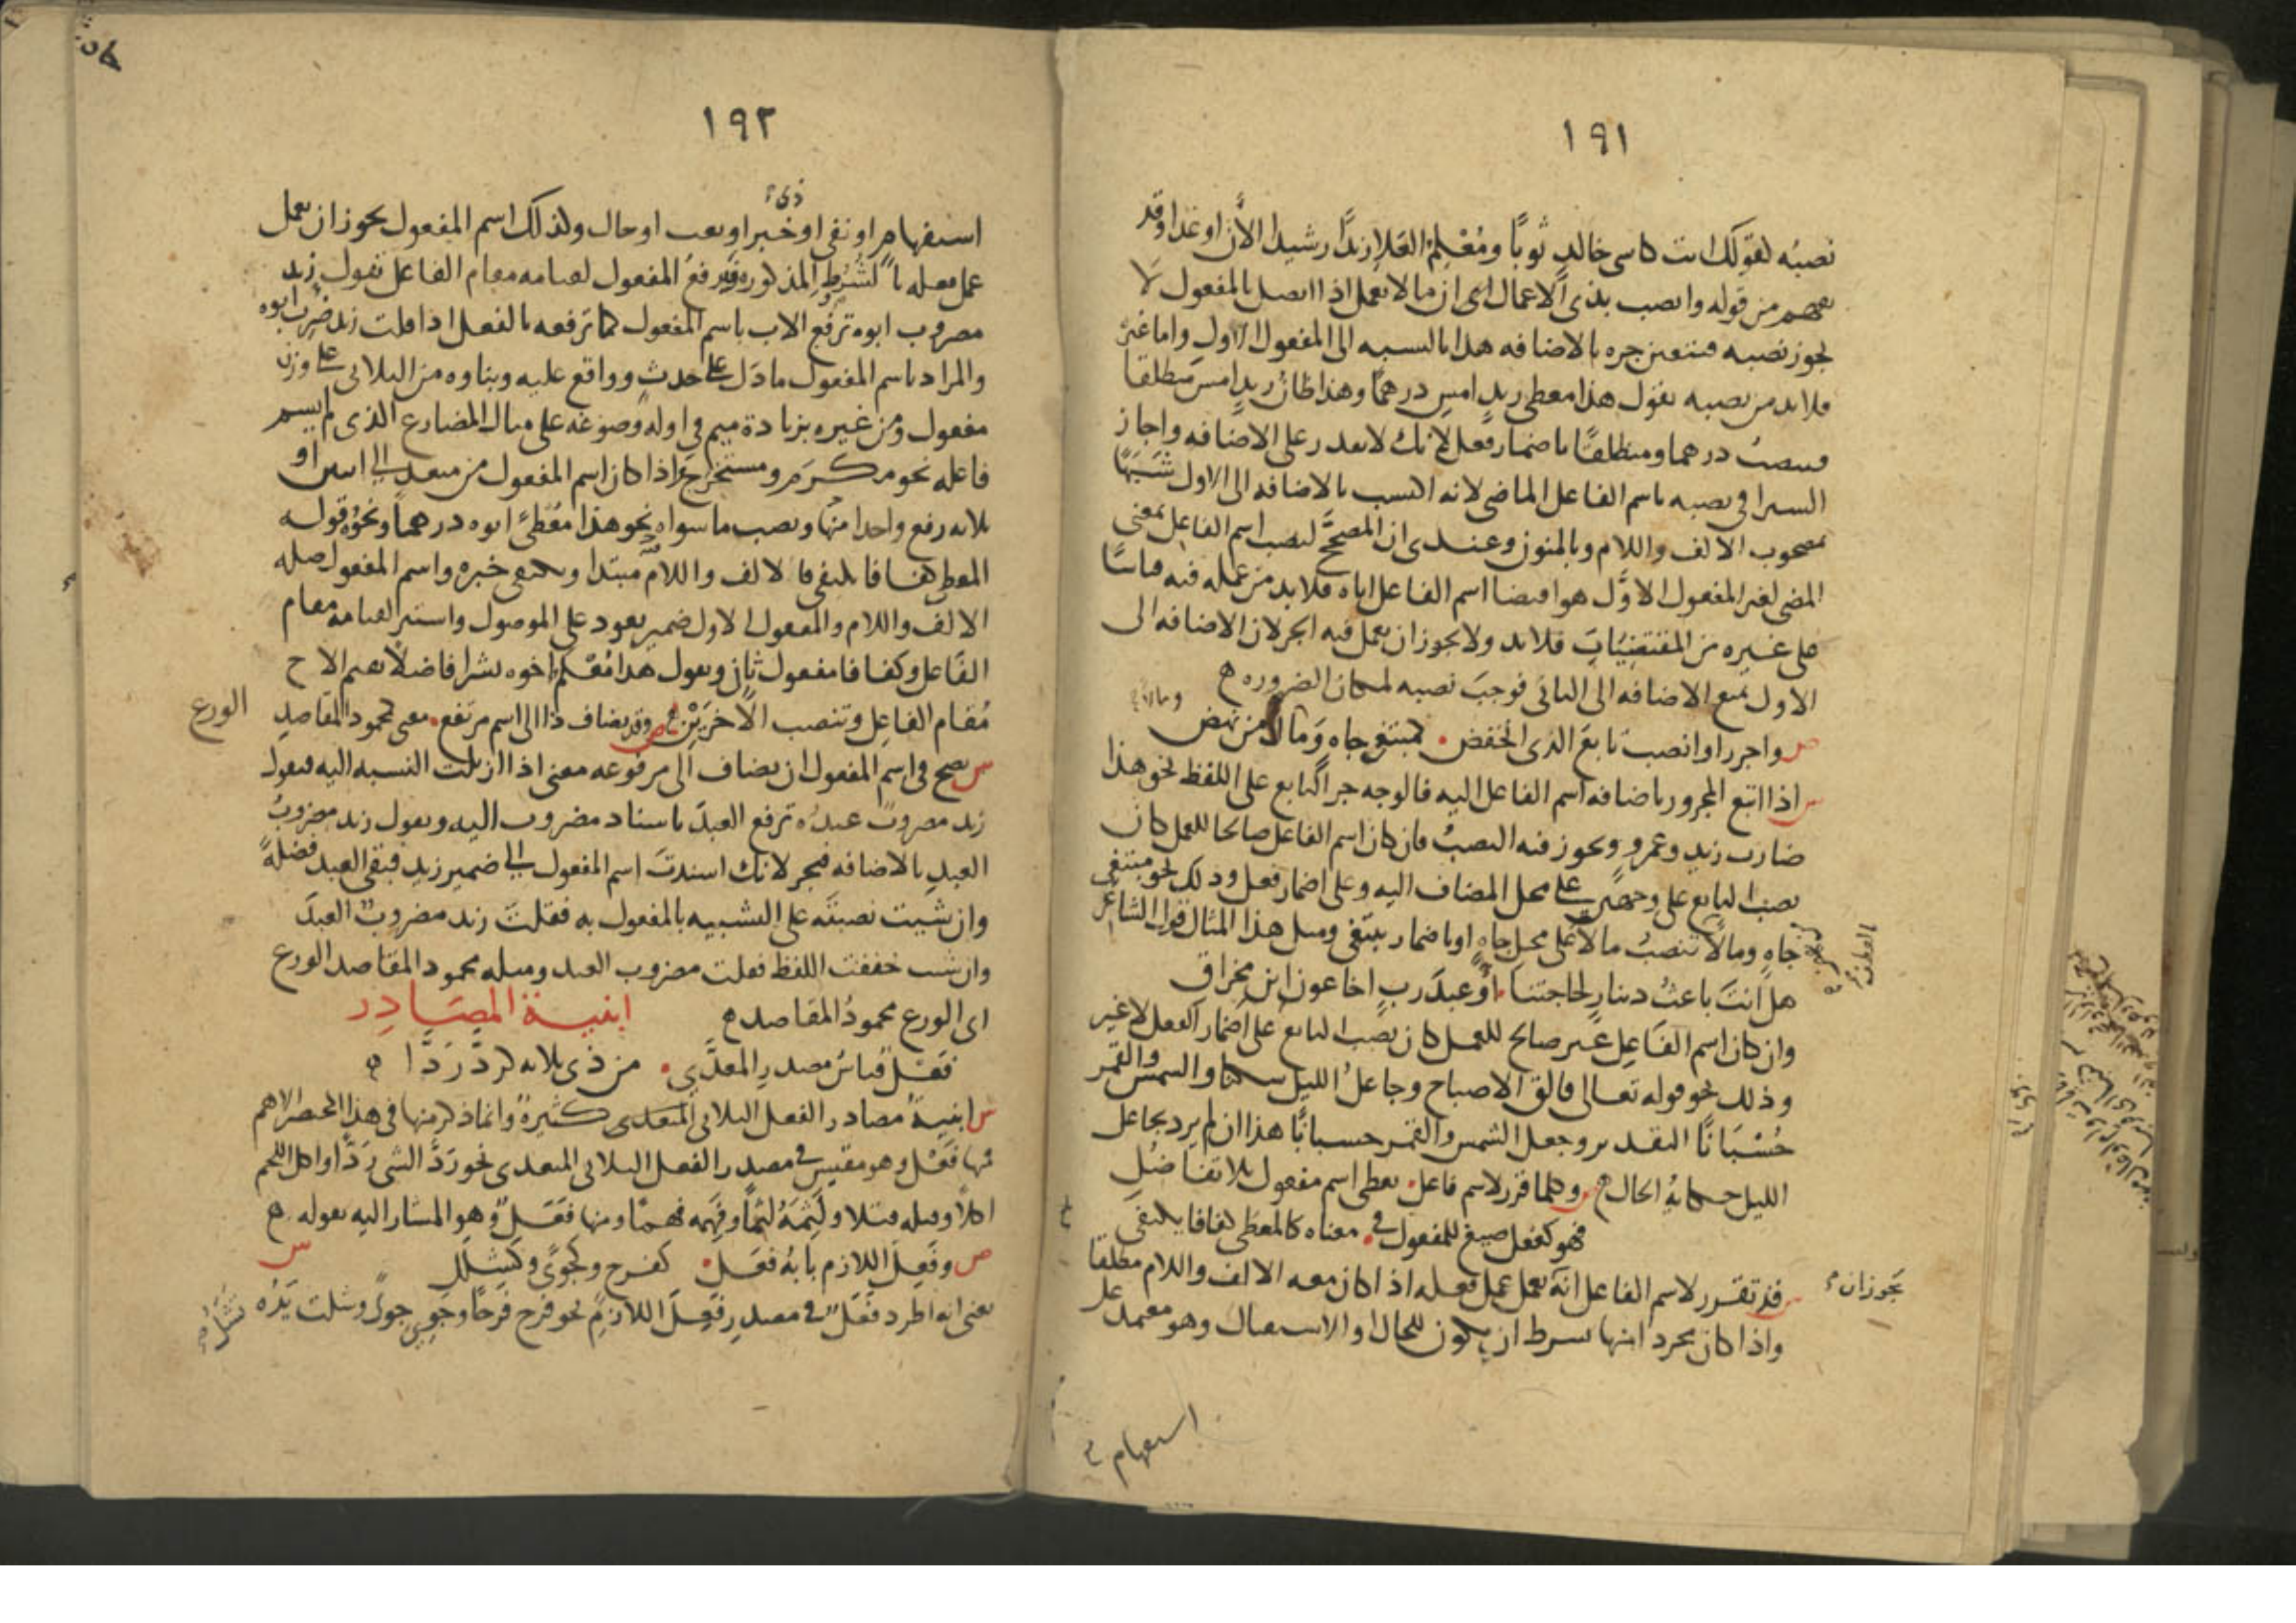 ١٩١
نصبُه لقولك انت كاسى خالدٍ ثوبًا ومُعْلِمُ العَلاءِ زيدًا رشيدا الآن او غدا وقد
يفهم من قوله وانصب بذى الاعمال اى ان ما لا يعمل اذا اتصل بالمفعول لا
يجوز نصبه فيتعين جره بالاضافه هذا بالنسبه الى المفعول الاول واما غيره
فلا بد من نصبه تقول هذا معطى زيدٍ امسِ درهمًا وهذا ظانُّ زيدٍ امسِ منطلقا
فينصبُ درهما ومنطلقًا باضمار فعل لانك لا تقدر على الاضافه واجاز
السيرافى نصبه باسم الفاعل الماضى لانه اكتسب بالاضافه الى الاول شَبَهًا
بمصحوب الالف واللام وبالمنون وعندى ان المصحّح لنصب اسم الفاعل بمعنى
المضى لغير المفعول الاوَّل هو اقتضا اسم الفاعل اياه فلا بد من عمله فيه قياسًا
على غيره من المقتضِيَاتِ فلابد ولا يجوز ان يعمل فيه الجر لان الاضافه الى
الاول تمنع الاضافه الى الثانى فوجبَ نصبه لمكان الضروره ه
ص واجرر او انصب تابعَ الذى انخفض • كمبتغى جاهٍ وَمالًا من نهض
س اذا اتبع المجرور باضافه اسم الفاعل اليه فالوجه جر التابع على اللفظ نحو هذا
ضاربُ زيدٍ وعمروٍ ويجوز فيه النصبُ فان كان اسم الفاعل صالحا للعمل كان
نصب التابع على وجهين على محل المضاف اليه وعلى اضمار فعل وذلك نحو مبتغى
جاهٍ ومالًا تنصبُ مالًا على محل جاهٍ او باضمار يبتغى ومثل هذا المثال قول الشاعر
هل انتَ باعثُ دينارٍ لحاجتنا • أو عبدَ ربٍ اخا عون ابن مخراق
وان كان اسم الفَاعِل غير صالح للعمل كان نصب التابع على اضمار الفعل لا غير
وذلك نحو قوله تعالى فالق الاصباح وجاعلُ الليل سكنا والشمسَ والقمرَ
حُسْبَانًا التقدير وجعل الشمس والقمر حسبانًا هذا ان لم يرد بجاعل
الليل حكايةُ الحال ه ص وكلما قرر لاسم فاعل • يعطى اسم مفعول بلا تفاضُلِ
فهو كفعل صيغ للمفعول فى • معناه كالمعطَى كفافا يكتفى
س قد تقرر لاسم الفاعل انَّه يعمل عمل فعله اذا كان معه الالف واللام مطلقا
يجوز ان
واذا كان مجردا منها بشرط ان يكون للحال او الاستقبال وهو معتمد على
استفهام
١٩٢
استفهامٍ او نفى او خبر او نعت او حال وكذلك اسم المفعول يجوز ان يعمل
ذى
عمل فعله بالشُرُوطِ المذكوره فيرفعُ المفعول لقيامه مقام الفاعل تقول زيد
مضروب ابوه ترفع الاب باسم المفعول كما ترفعه بالفعل اذا قلت زيد ضُرِب ابوه
والمراد باسم المفعول ما دَل على حدث وواقع عليه وبناوه من الثلاثى على وزن
مفعول ومن غيره بزيادة ميم فى اوله وصوغه على مثال المضارع الذى لم يسم
فاعله نحو مكرَم ومستخرَج واذا كان اسم المفعول من متعد الى اثنين او
ثلاثه رفع واحدا منها ونصب ما سواه نحو هذا مُعْطًى ابوه درهماً ونحوُه قوله
المعطى كفافا يكتفى فالالف واللام مبتدا ويكتفى خبره واسم المفعول صله
الالف واللام والمفعول الاول ضمير يعود على الموصول واستتر لقيامه مقام
الفَاعل وكفافا مفعول ثانٍ وتقول هذا مُعْلَم اخوه بشرا فاضلاً تقيم الاخ
مُقام الفاعِل وتنصب الآخَرَيْنِ ص وقد يضاف ذا الى اسم مرتفع • معنى كمحمود المقاصدِ
الورع
س يصح فى اسم المفعول ان يضاف الى مرفوعه معنى اذا ازيلت النسبه اليه فتقول
زيد مضروبٌ عبدُه ترفع العبدَ باسناد مضروب اليه وتقول زيد مضروبُ
العبدِ بالاضافه فتجر لانك اسندتَ اسم المفعول الى ضمير زيدٍ فبقى العبد فضلةً
وان شيت نصبتَه على التشبيه بالمفعول به فقلتَ زيد مضروبٌ العبدَ
وان شيت خففت اللفظ فقلت مضروب العبد ومثله محمود المقاصد الورع
اى الورع محمودُ المقاصد ه ابنية المصَادِر
فَعْلٌ قياسُ مصدرِ المعدَّى • من ذى ثلاثه كردَّ رَدَّا ه
س ابنيةُ مصادر الفعل الثلاثى المتعدى كثيرةٌ وانما ذكر منها فى هذا المختصر الاهم
فمنها فَعْل وهو مقيس فى مصدر الفعل الثلاثى المتعدى نحو رَدَّ الشى رَدًّا واكل اللحم
اكلاً وقتله قتلا ولَثِمَهُ لثمًا وفَهِمَه فهمًا ومنها فَعَلٌ وهو المشار اليه بقوله ه
ص وفَعِلَ اللازم بابُهُ فَعَل • كفرح وكجوًى وكشَلَل س
يعنى انه اطرد فَعَلٌ فى مصدر فَعِلَ اللازم نحو فرح فرحًا وجَوِىَ جوًى وشلت يَدُه